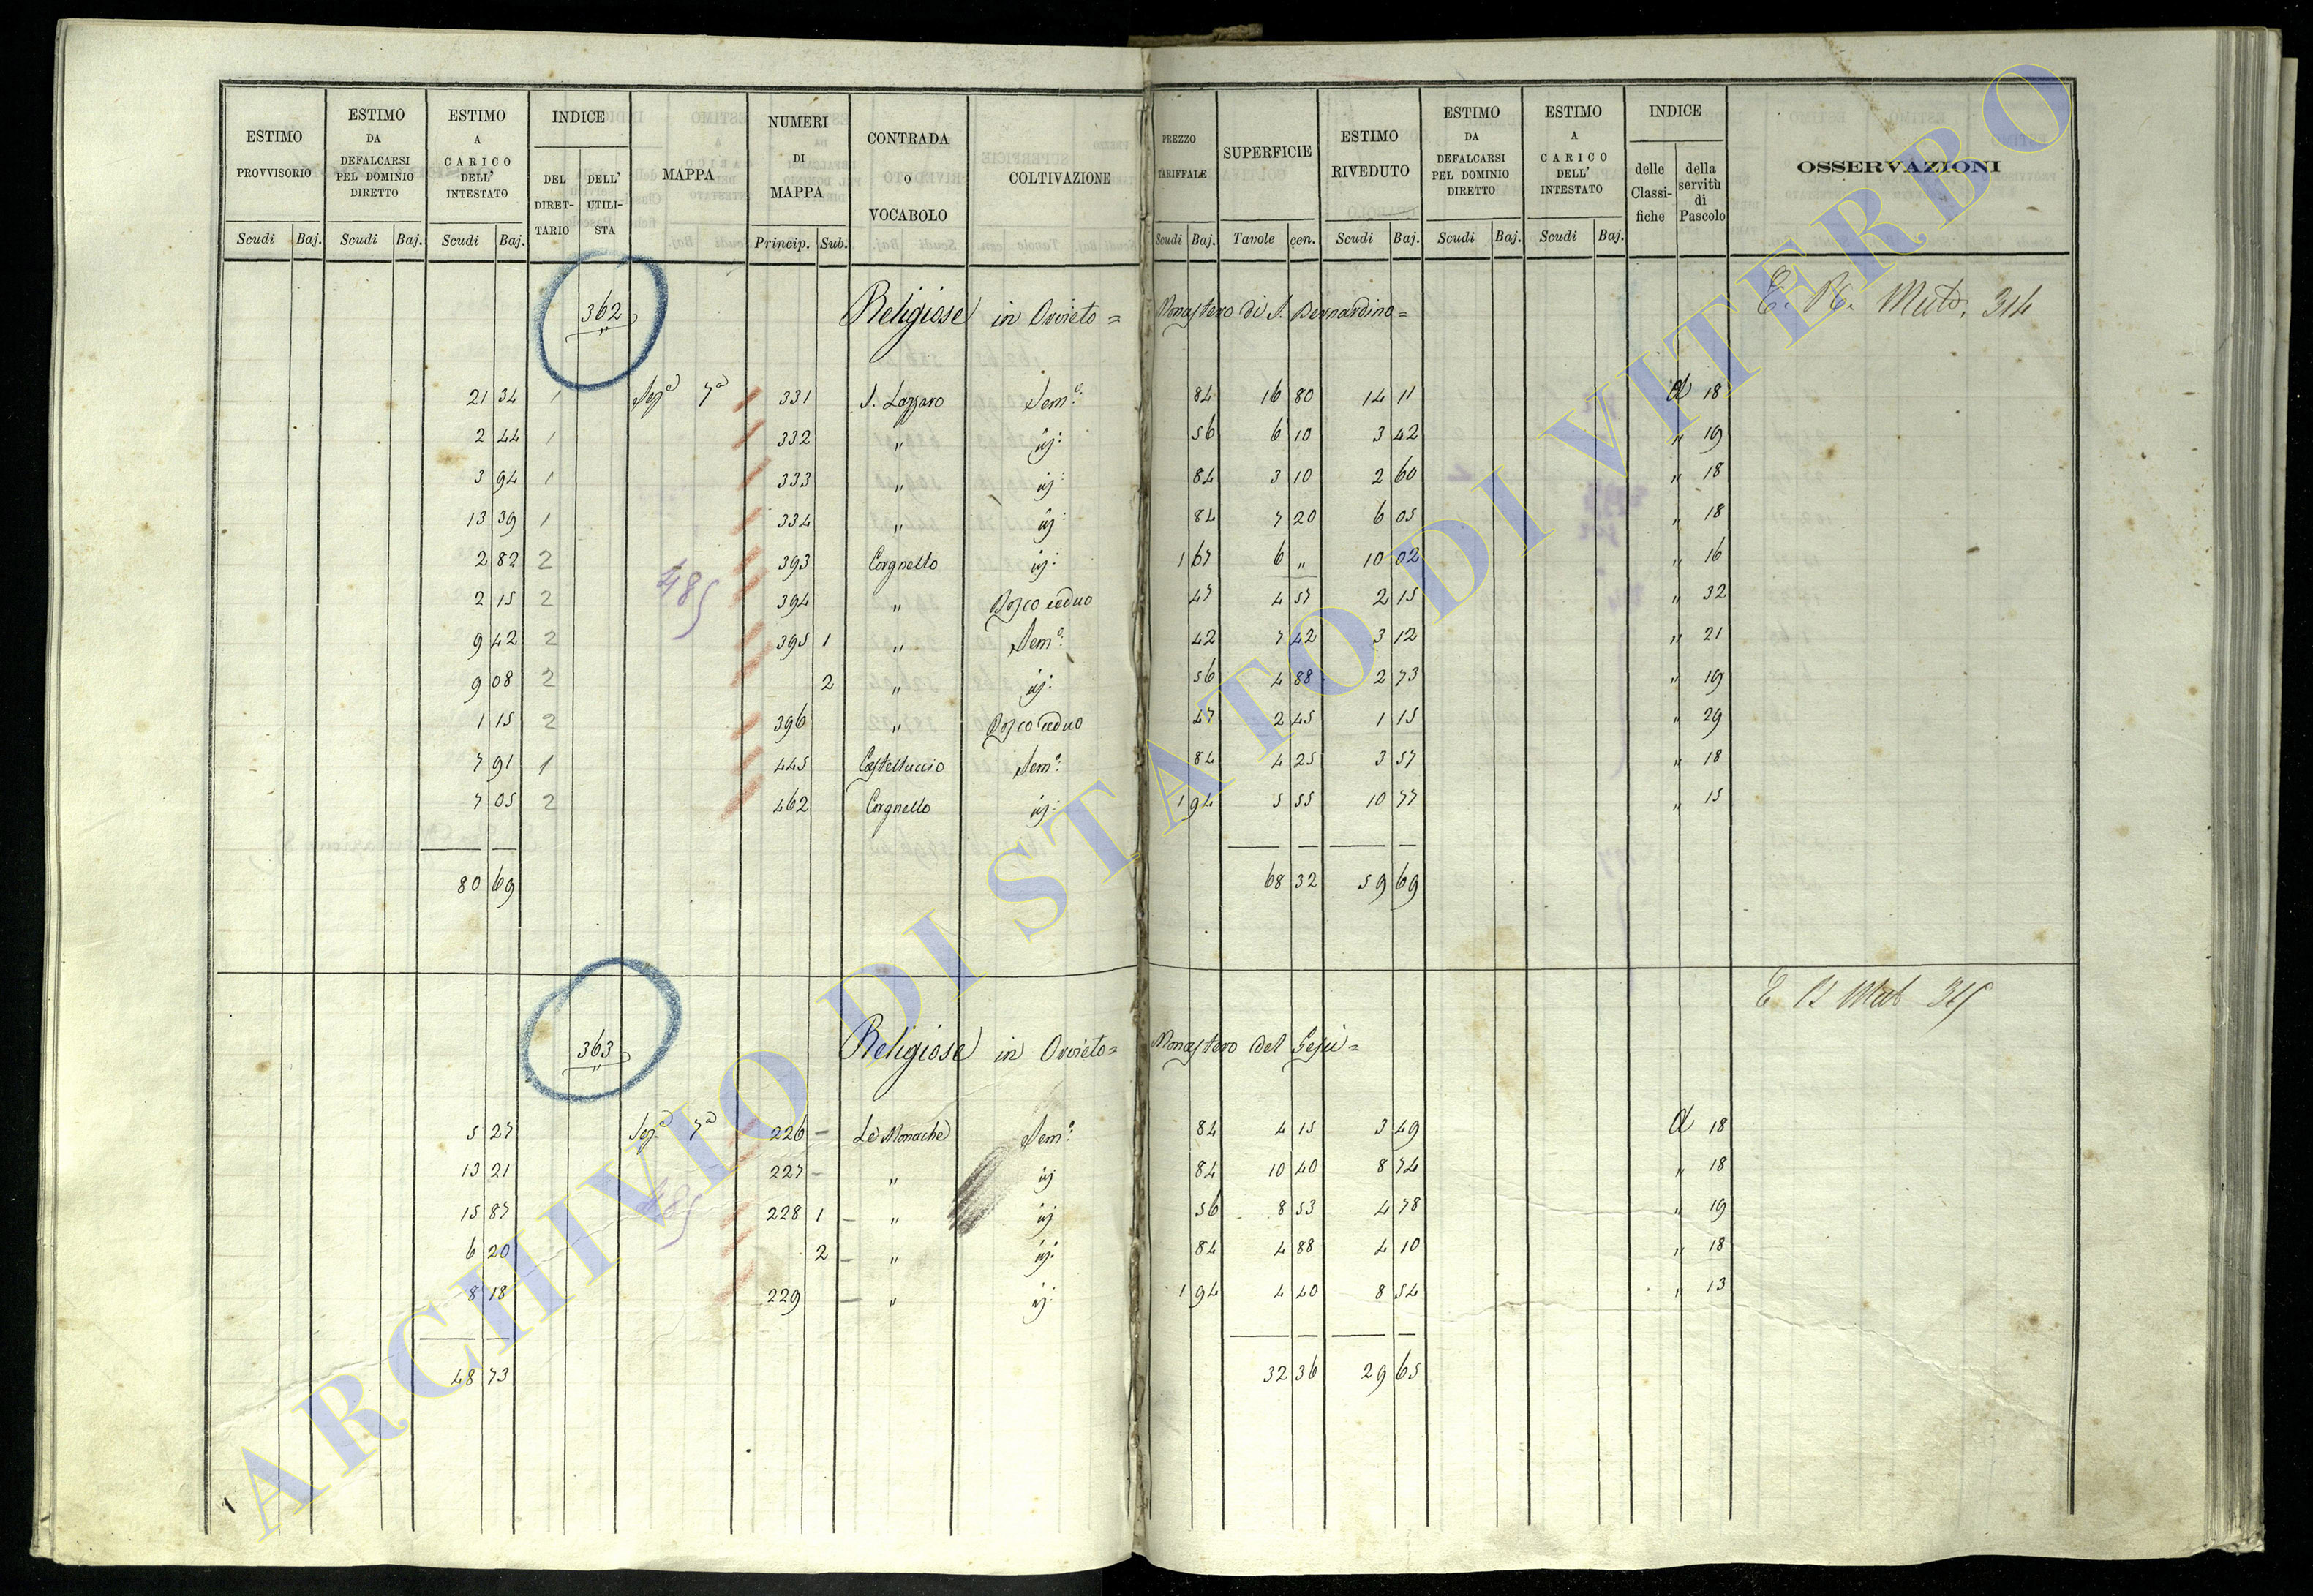 ESTIMO PROVVISORIO
ESTIMO DA DEFALCARSI PEL DOMINIO DIRETTO
ESTIMO A CARICO DELL' INTESTATO
INDICE
DEL DIRET-TARIO
DELL' UTILI-STA
MAPPA
NUMERI DI MAPPA
CONTRADA o VOCABOLO
COLTIVAZIONE
PREZZO TARIFFALE
SUPERFICIE
ESTIMO RIVEDUTO
ESTIMO DA DEFALCARSI PEL DOMINIO DIRETTO
ESTIMO A CARICO DELL' INTESTATO
INDICE
delle Classi-fiche
della servitù di Pascolo
OSSERVAZIONI
Scudi Baj. Scudi Baj. Scudi Baj. Princip. Sub. Scudi Baj. Tavole cen. Scudi Baj. Scudi Baj. Scudi Baj.
362 Religiose in Orvieto = Monastero di S. Bernardino = Mut. 314
21 34 1 Sez.e 7a 331 S. Lazzaro Sem.o 84 16 80 14 11 d 18
2 44 1 332 " id: 56 6 10 3 42 " 19
3 94 1 333 " id: 84 3 10 2 60 " 18
13 39 1 334 " id: 84 7 20 6 05 " 18
2 82 2 393 Corgnello id: 1 67 6 " 10 02 " 16
485
2 15 2 394 " Bosco ceduo 47 4 57 2 15 " 32
9 42 2 395 1 " Sem.o 42 7 42 3 12 " 21
9 08 2 2 " id: 56 4 88 2 73 " 19
1 15 2 396 " Bosco ceduo 47 2 45 1 15 " 29
7 91 1 445 Castelluccio Sem.o 84 4 25 3 57 " 18
7 05 2 462 Corgnello id: 1 94 5 55 10 77 " 15
80 69 68 32 59 69
363 Religiose in Orvieto = Monastero del Gesù =
5 27 Sez.e 7a 226 Le Monache Sem.o 84 4 15 3 49 d 18
13 21 227 " id 84 10 40 8 74 " 18
485
15 87 228 1 " id 56 8 53 4 78 " 19
6 20 2 " id: 84 4 88 4 10 " 18
8 18 229 " id: 1 94 4 40 8 54 " 13
48 73 32 36 29 65
ARCHIVIO DI STATO DI VITERBO